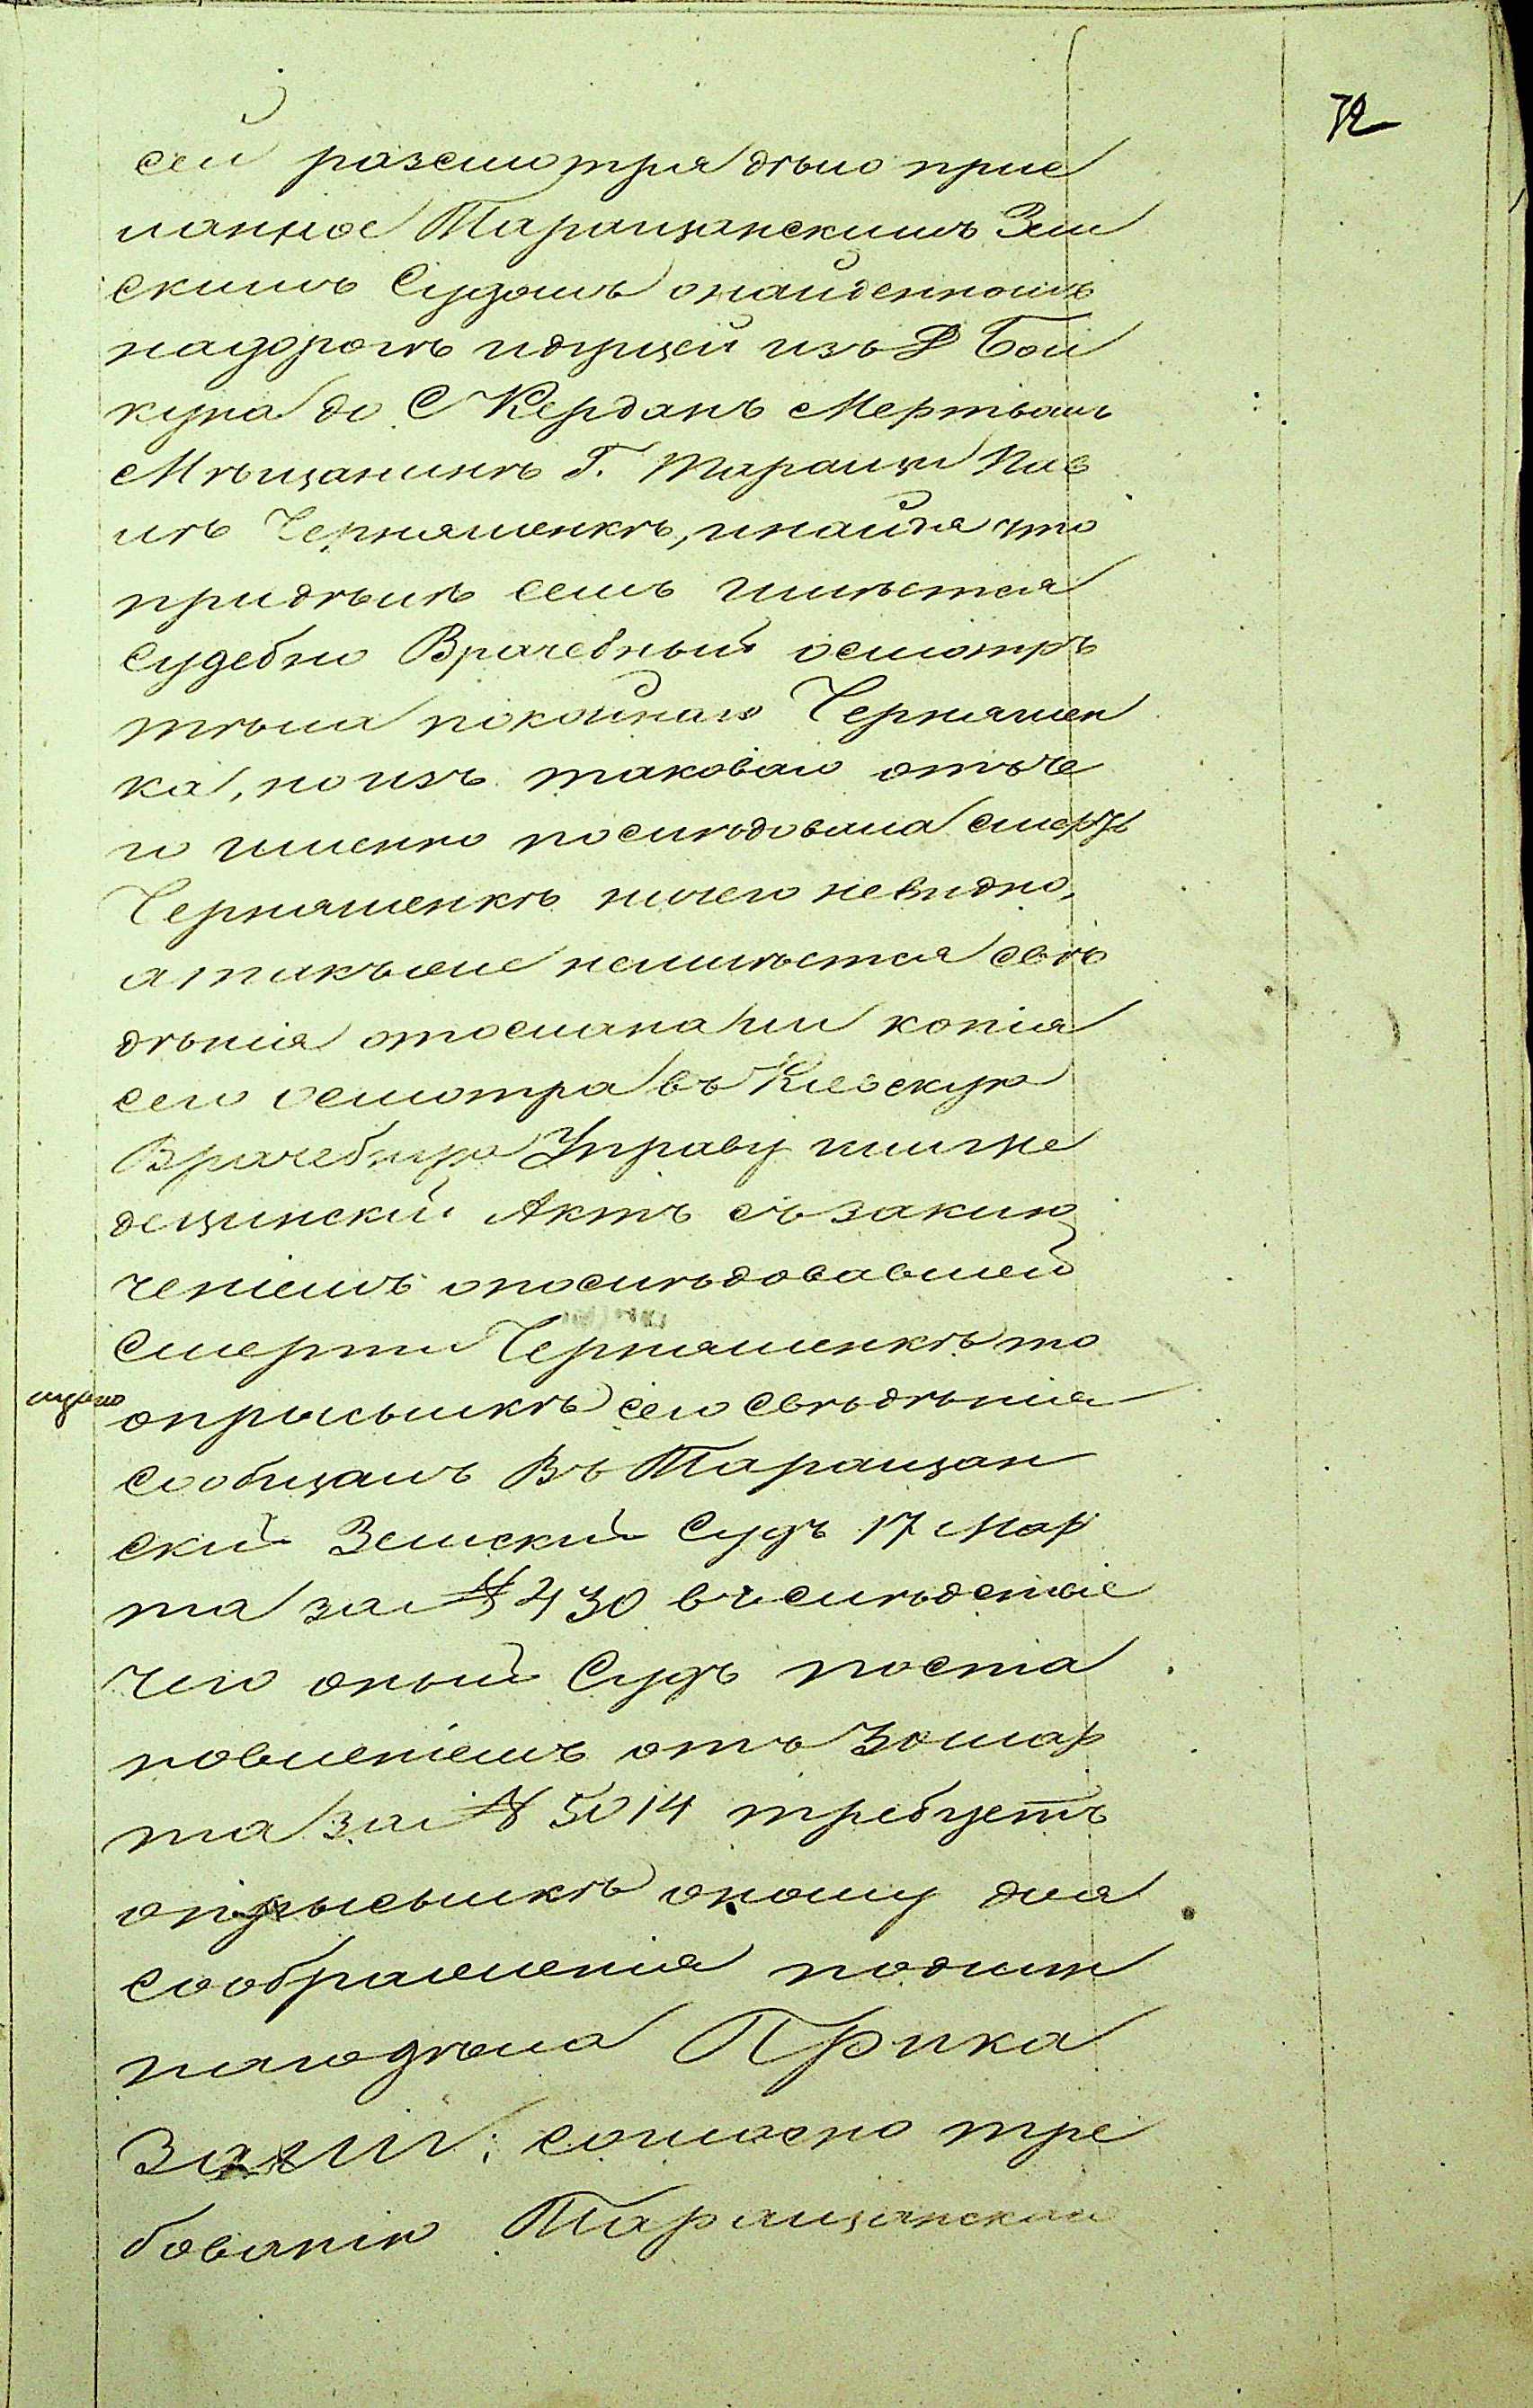 72
сей разсмотря дѣло прис
ланное Таращанскимъ Зем
скимъ Судомъ онайденномъ
надорогѣ идущей изъ Д Бай
кука до С Кердакъ Мертвомъ
Мѣщанинѣ Г. Таращи Пав
лѣ Черняшенкѣ, инайдя что
придѣлѣ семъ имѣется
Судебно Врачебный осмотръ
тѣла покойнаго Черняшен
ка, но изъ таковаго отъ че
го именно последовала смерть
Черняшенкѣ ничего невидно,
а такъже неимѣется свѣ
дѣнія отослана ли копія
сего осмотра въ Кіевскую
Врачебную Управу или ме
децинскій Актъ съ заклю
ченіемъ опослѣдовавшей
смерти Черняшенкѣ то
оприсылкѣ сего свѣдѣнія
сообщалъ Въ Таращан
скій Земскій Судъ 17 Мар
та за № 430 въ слѣдствіе
чего оный Судъ поста
новленіемъ отъ 30 мар
та за № 5014 требуетъ
оприсылкѣ оному для
сображенія подлин
наго дѣла Прика
зали: согласно тре
бованію Таращанскаго